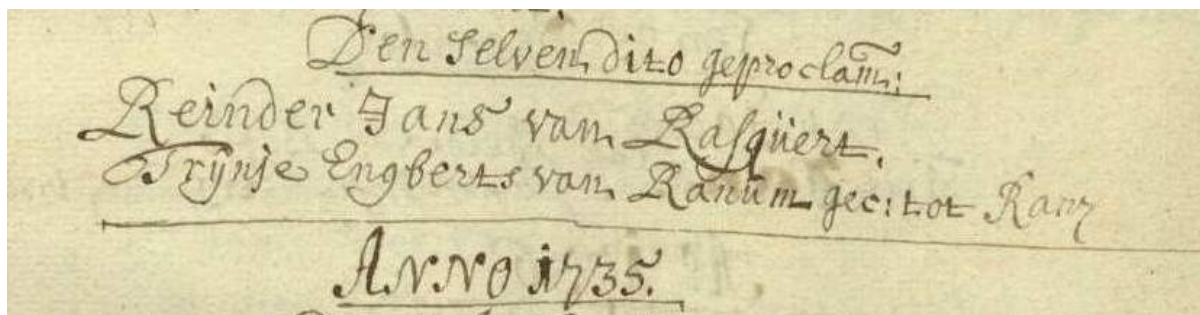 Den selven dito geproclam̄:
Reinder Jans van Rasqüert.
Trÿnje Engberts van Ranŭm gec: tot Ranŭ
ANNO 1735.